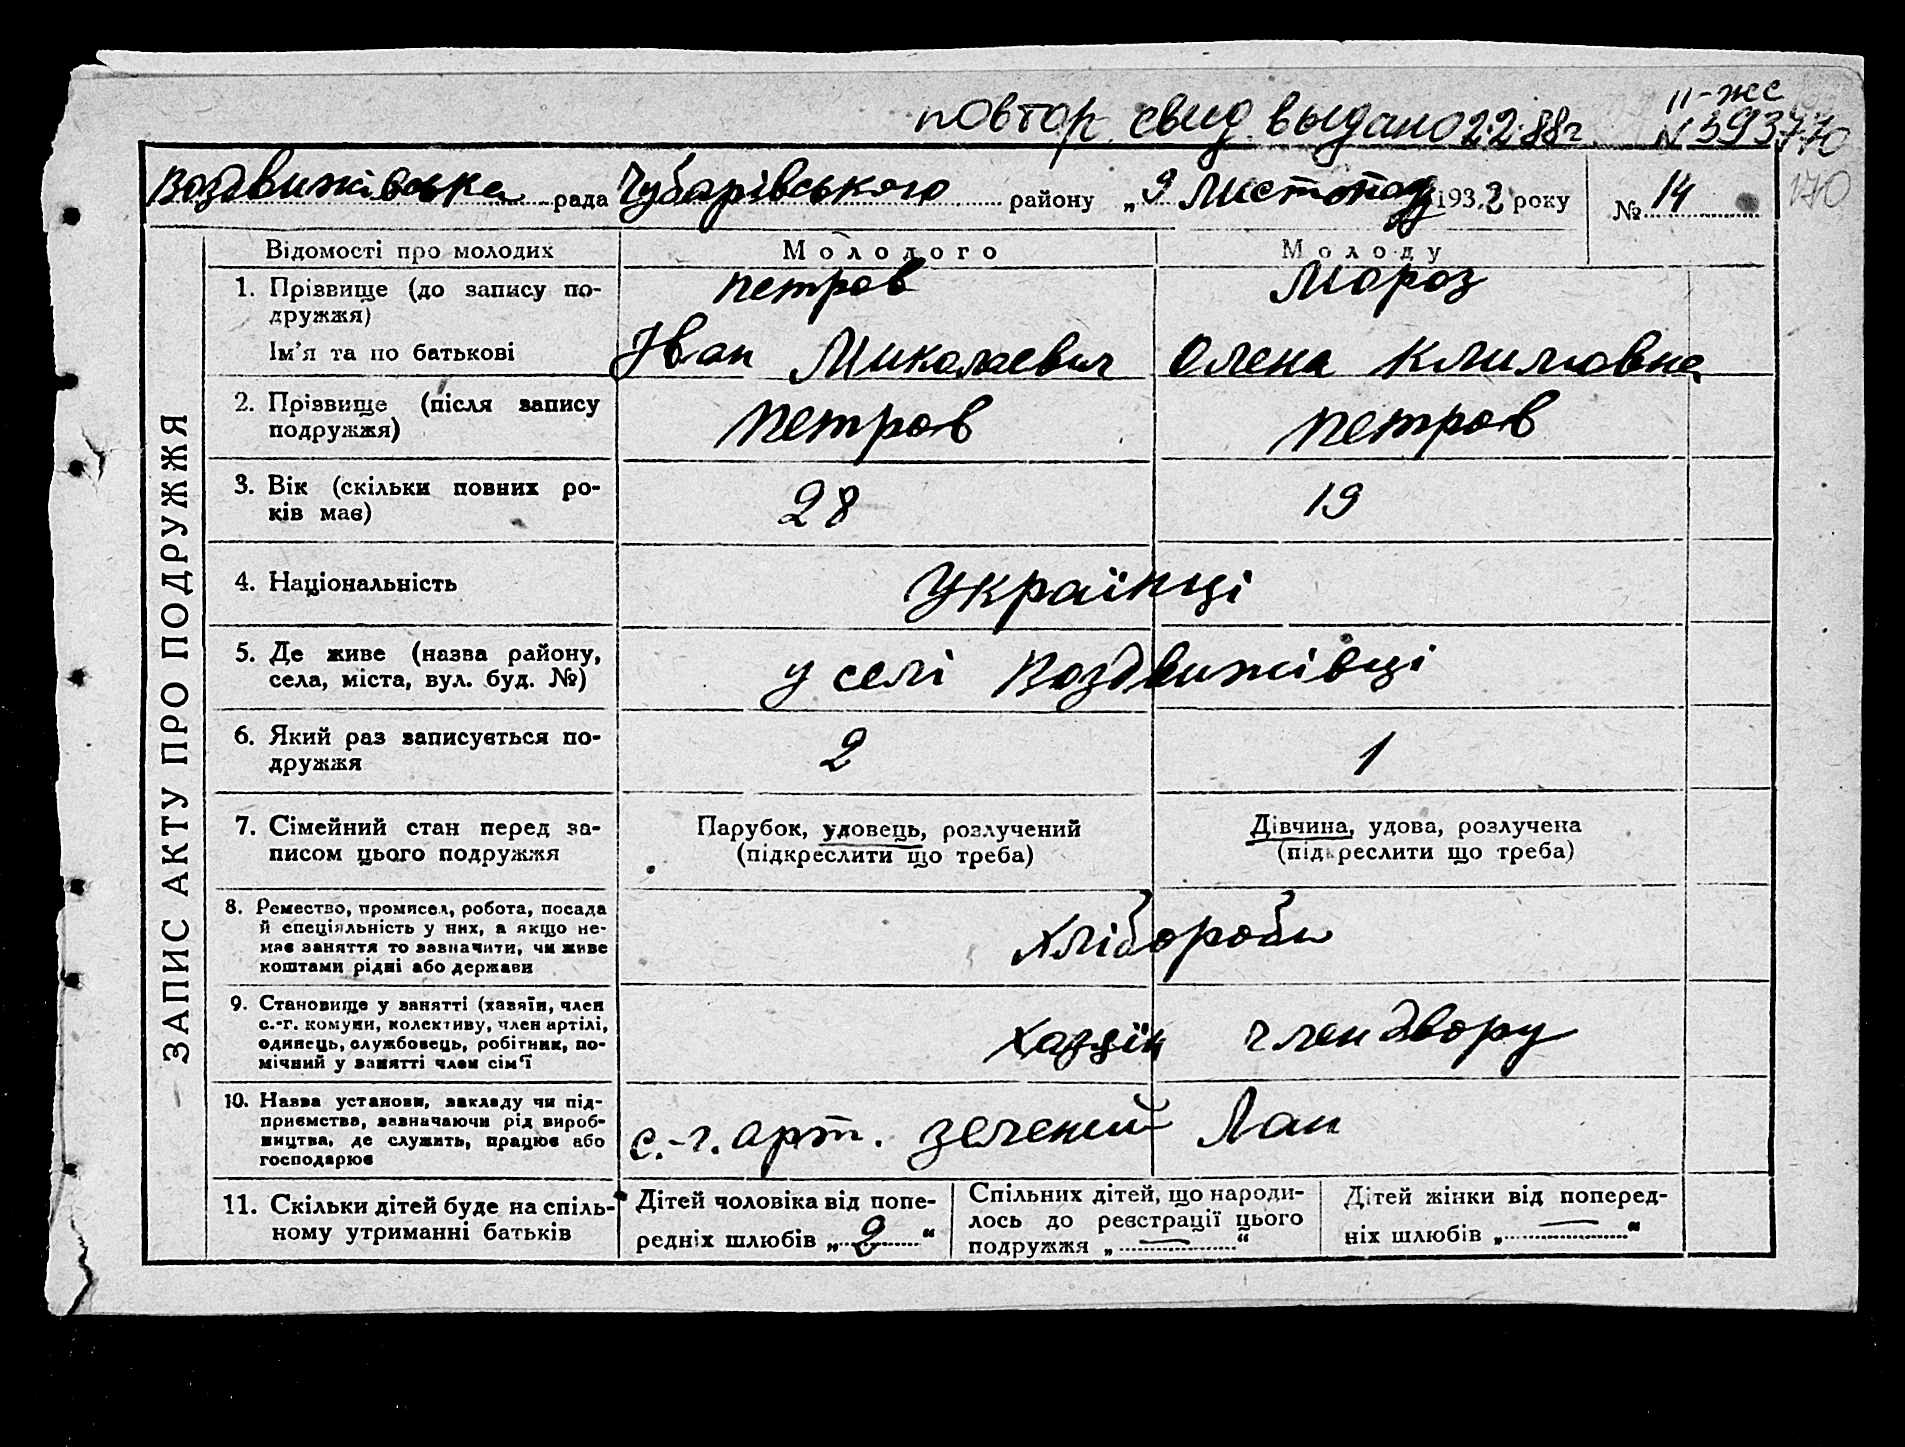 повтор. свид. выдано 2.2.88г. II-жс
N 593770
170
Воздвижівська рада Чубарівського району „9 Листопад 1933 року № 14
Відомості про молодих Молодого Молоду
1. Прізвище (до запису по- Петров Мороз
дружжя)
Ім'я та по батькові Іван Миколаевич Олена Климовна
2. Прізвище (після запису Петров Петров
подружжя)
3. Вік (скільки повних ро- 28 19
ків має)
4. Національність Українці
5. Де живе (назва району, у селі Воздвижівці
села, міста, вул. буд. №)
6. Який раз записується по- 2 1
дружжя
7. Сімейний стан перед за- Парубок, удовець, розлучений Дівчина, удова, розлучена
писом цього подружжя (підкреслити що треба) (підкреслити що треба)
8. Ремество, промисел, робота, посада
й спеціяльність у них, а якщо не- Хлібороби
має заняття то зазначити, чи живе
коштами рідні або держави
9. Становище у занятті (хазяїн, член
с.-г. комуни, колективу, член артілі, Хазяїн член двору
одинець, службовець, робітник, по-
мічний у занятті член сім'ї
10. Назва установи, закладу чи під-
приємства, зазначаючи рід вироб- с.-г. арт. Зелений Лан
ництва, де служить, працює або
господарює
11. Скільки дітей буде на спіль- Дітей чоловіка від попе- Спільних дітей, що народи- Дітей жінки від поперед-
ному утриманні батьків редніх шлюбів „ 2 “ лось до реєстрації цього ніх шлюбів „ — “
подружжя „ — “
ЗАПИС АКТУ ПРО ПОДРУЖЖЯ